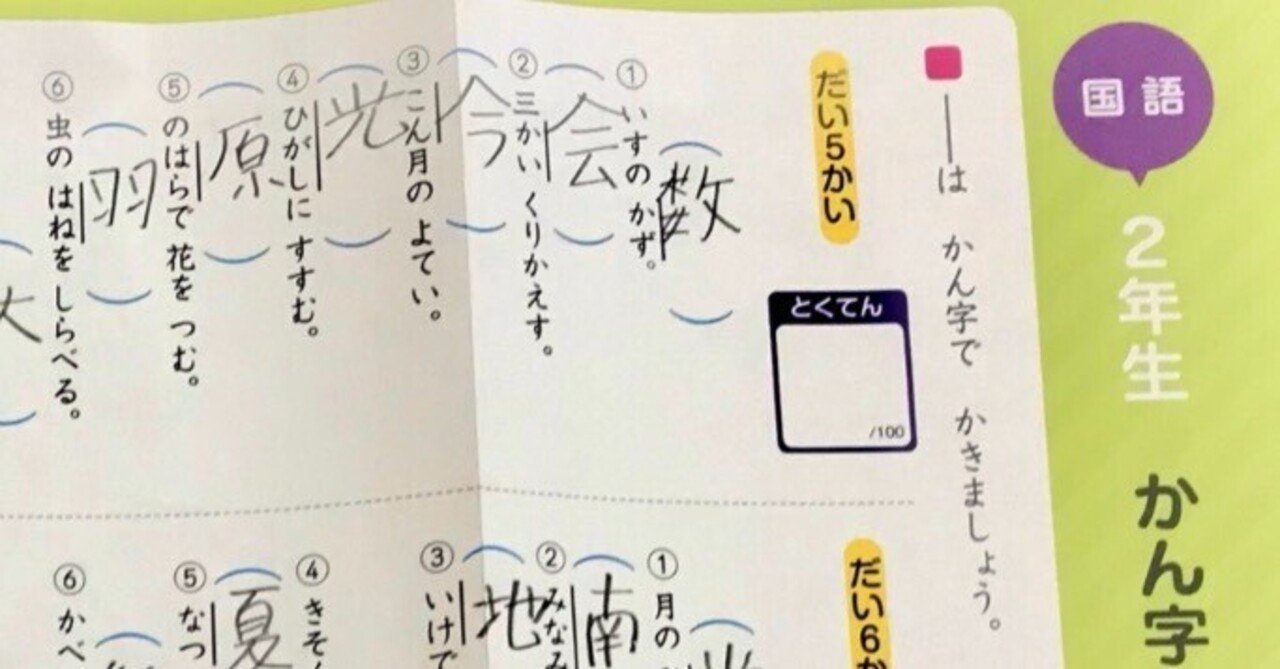 国語
2年生 かん字
は かん字で かきましょう。
だい5かい
とくてん
/100
数
① いすの かず。
会
② 三かい くりかえす。
今
③ こん月の よてい。
光
④ ひがしに すすむ。
原
⑤ のはらで 花を つむ。
羽
⑥ 虫の はねを しらべる。
だい6か
① 月の
南
② みなみ
地
③ いけで
④ きそ
夏
⑤ なつ
⑥ かべ